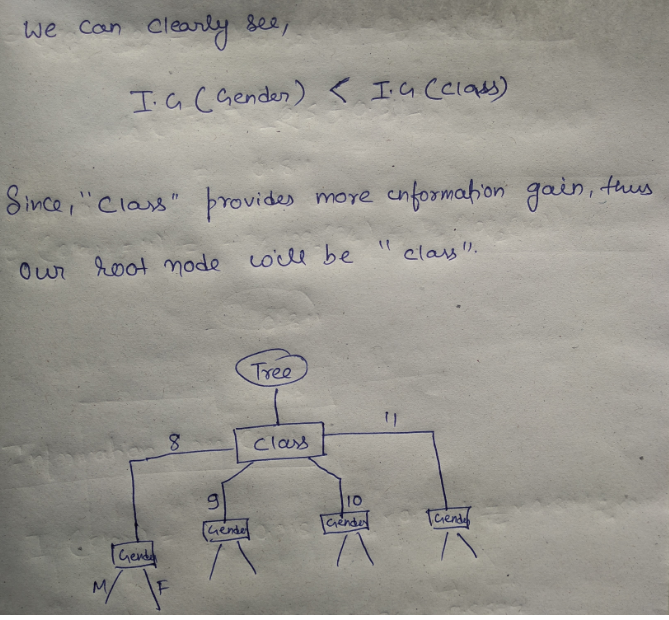 We can clearly see,
I.G (Gender) < I.G (Class)
Since, "Class" provides more information gain, thus
our root node will be "class".
Tree
Class
8
11
9
10
Gender
Gender
Gender
Gender
M
F